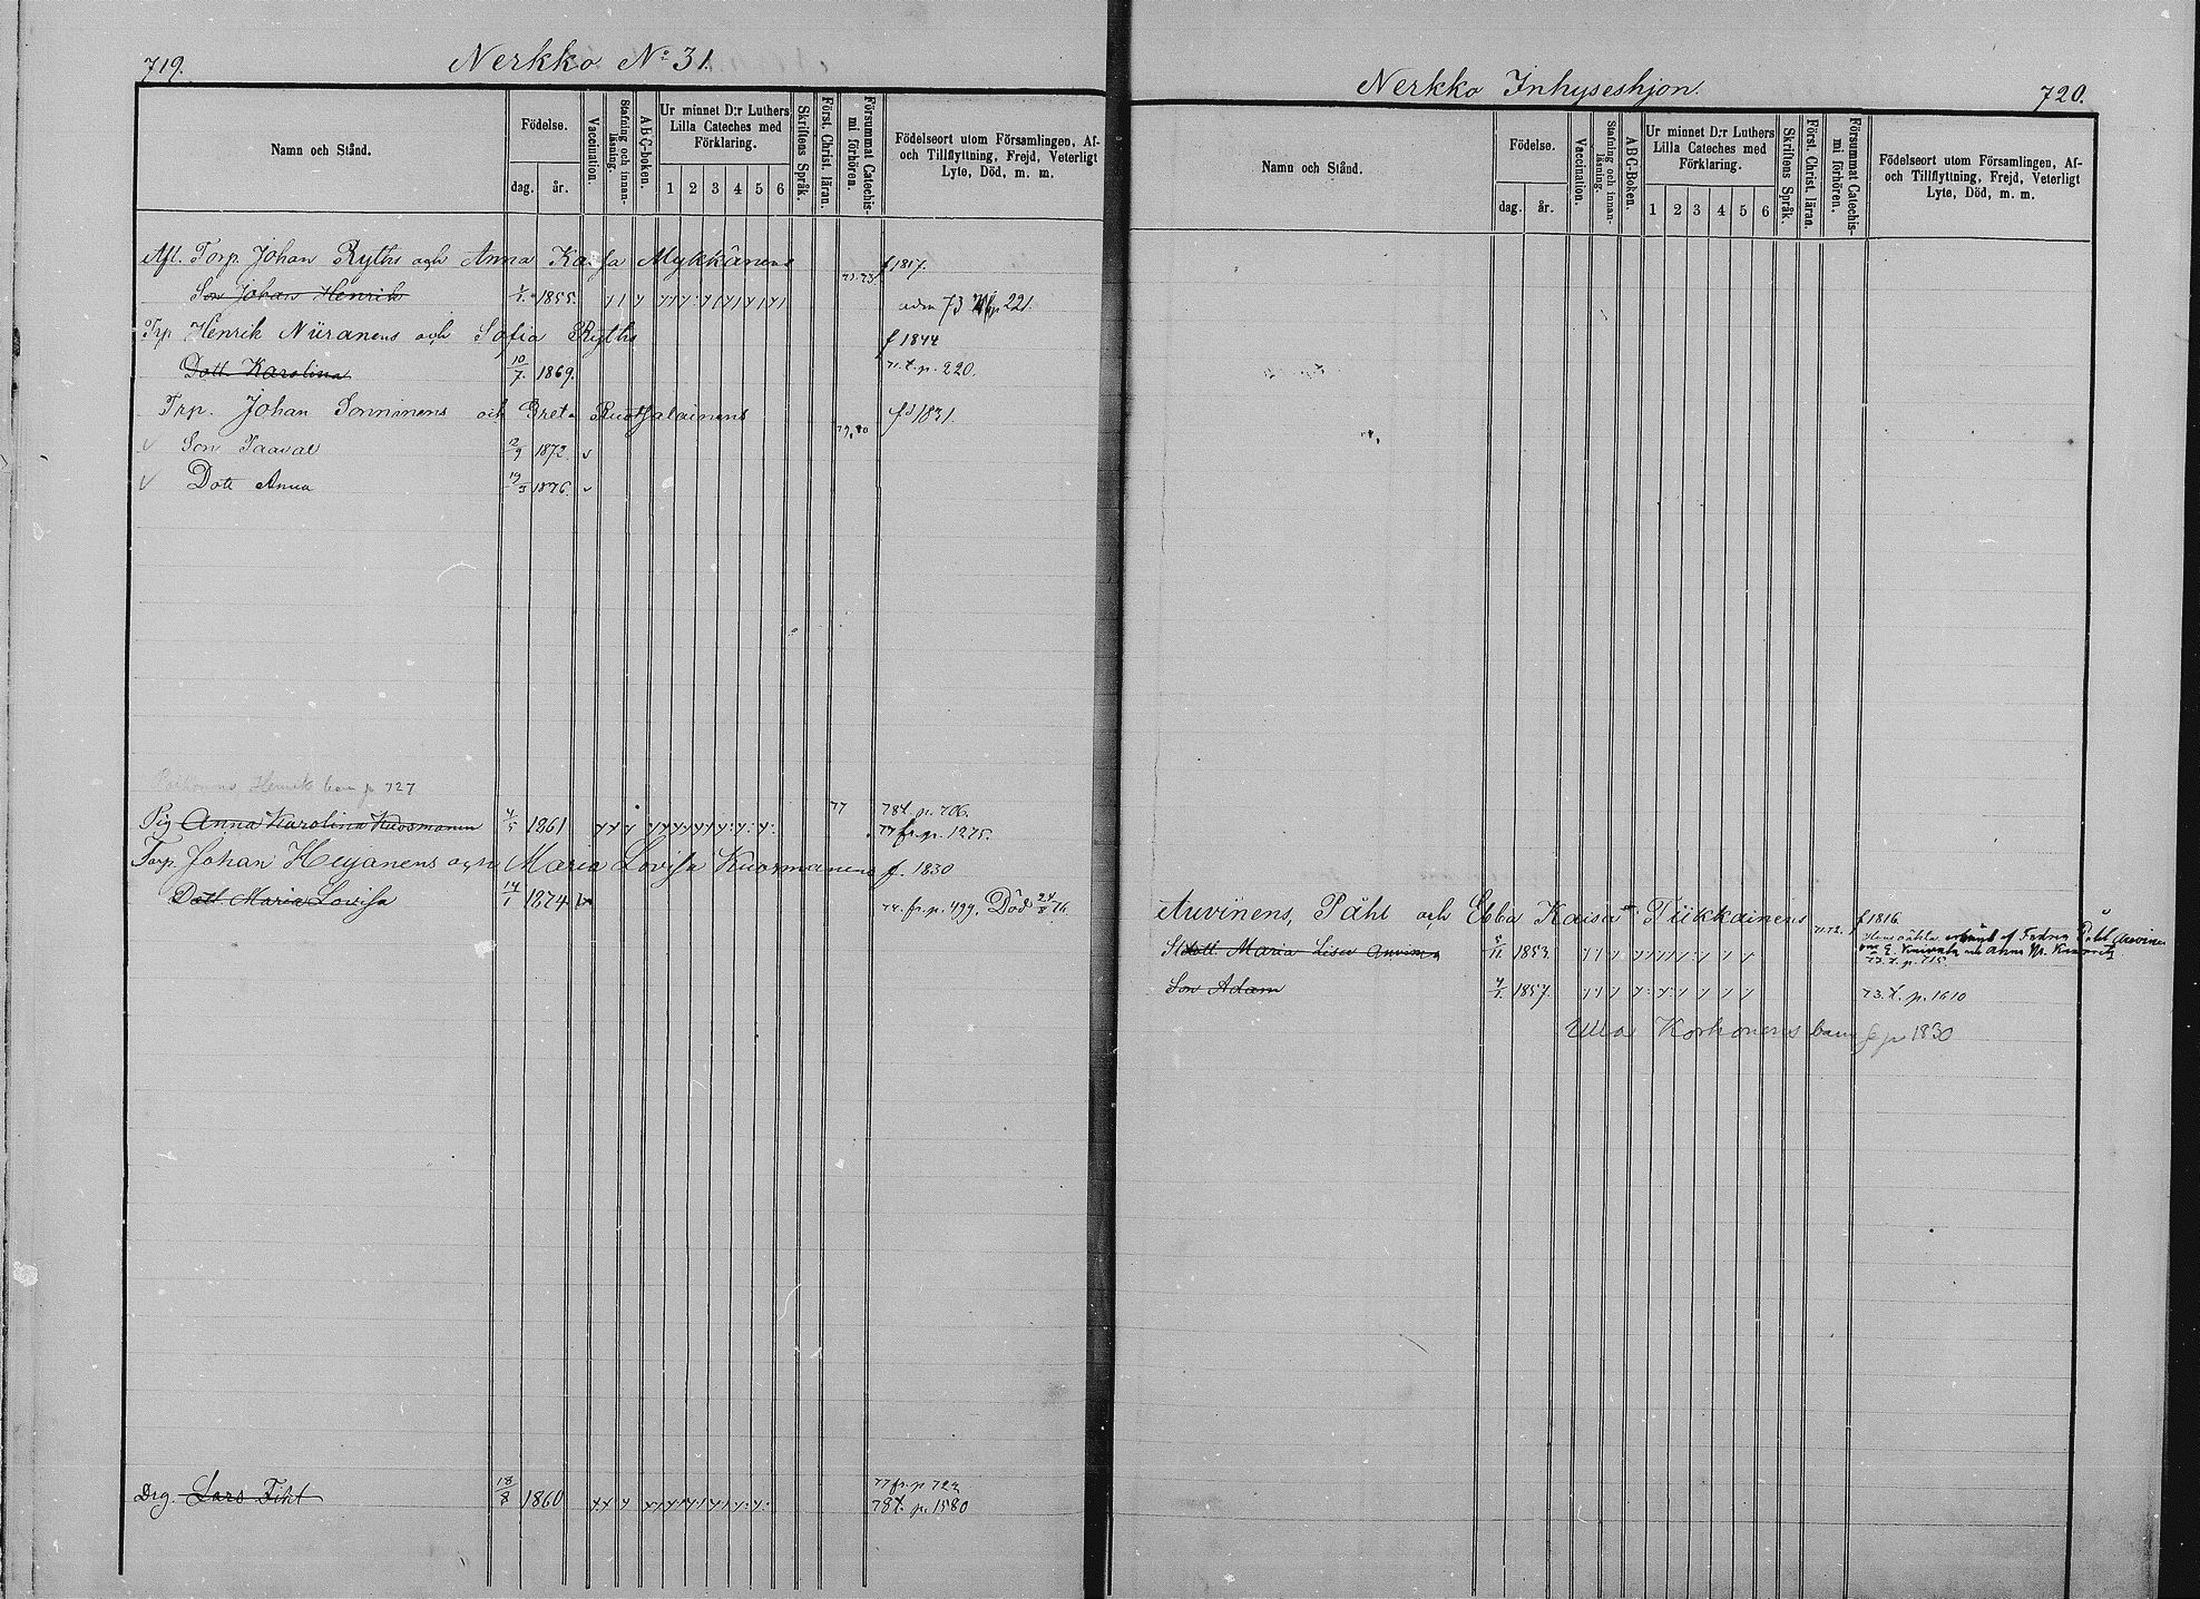 719.
Nerkko No 31
Namn och Stånd.
Födelse.
dag. år.
Vaccination.
Stafning och innanläsning.
ABC-boken.
Ur minnet D:r Luthers Lilla Cateches med Förklaring.
1 2 3 4 5 6
Skriftens Språk.
Först. Christ. läran.
Försummat Catechismi förhören.
Födelseort utom Församlingen, Af- och Tillflyttning, Frejd, Veterligt Lyte, Död, m. m.
Afl. Torp. Johan Ryths och Anna Kaisa Mykkänens f 1817.
Son Johan Henrik 1855. 73 p 221.
Trp Henrik Niiranens och Sofia Ryths f 1844
Dott. Karolina 10/7. 1869. 71. t. p. 220.
Trp. Johan Sonninens och Greta Ruotsalainens 1831.
79,80
Son Paaval 2/9 1872.
Dott Anna 19/3 1876.
Henrik barn p 727
Pig Anna Karolina Kuosmanen 4/5 1861 77 78 t. p. 706.
77 fr. p. 1275.
Torp. Johan Heijanens och Maria Lovisa Kuosmanens f. 1830
Dott Maria Lovisa 14/1 1874 fr. p. 499. Död 24/8 76.
Drg. Lars Fihl 18/8 1860 77 fr. p 723
78 t. p. 1580
Nerkko Inhyseshjon.
720.
Namn och Stånd.
Födelse.
dag. år.
Vaccination.
Stafning och innanläsning.
ABC-Boken.
Ur minnet D:r Luthers Lilla Cateches med Förklaring.
1 2 3 4 5 6
Skriftens Språk.
Först. Christ. läran.
Försummat Catechismi förhören.
Födelseort utom Församlingen, Af- och Tillflyttning, Frejd, Veterligt Lyte, Död, m. m.
Auvinens, Påhl och Ebba Kaisa Tiikkainens 71.72. f 1816.
Maria Lisa Auvinen 5/11 1853. af Fadren Påhl Auvinen
p. 715.
Son Adam 1857. 73. t. p. 1610
Ulla Korhonens barn p 1830